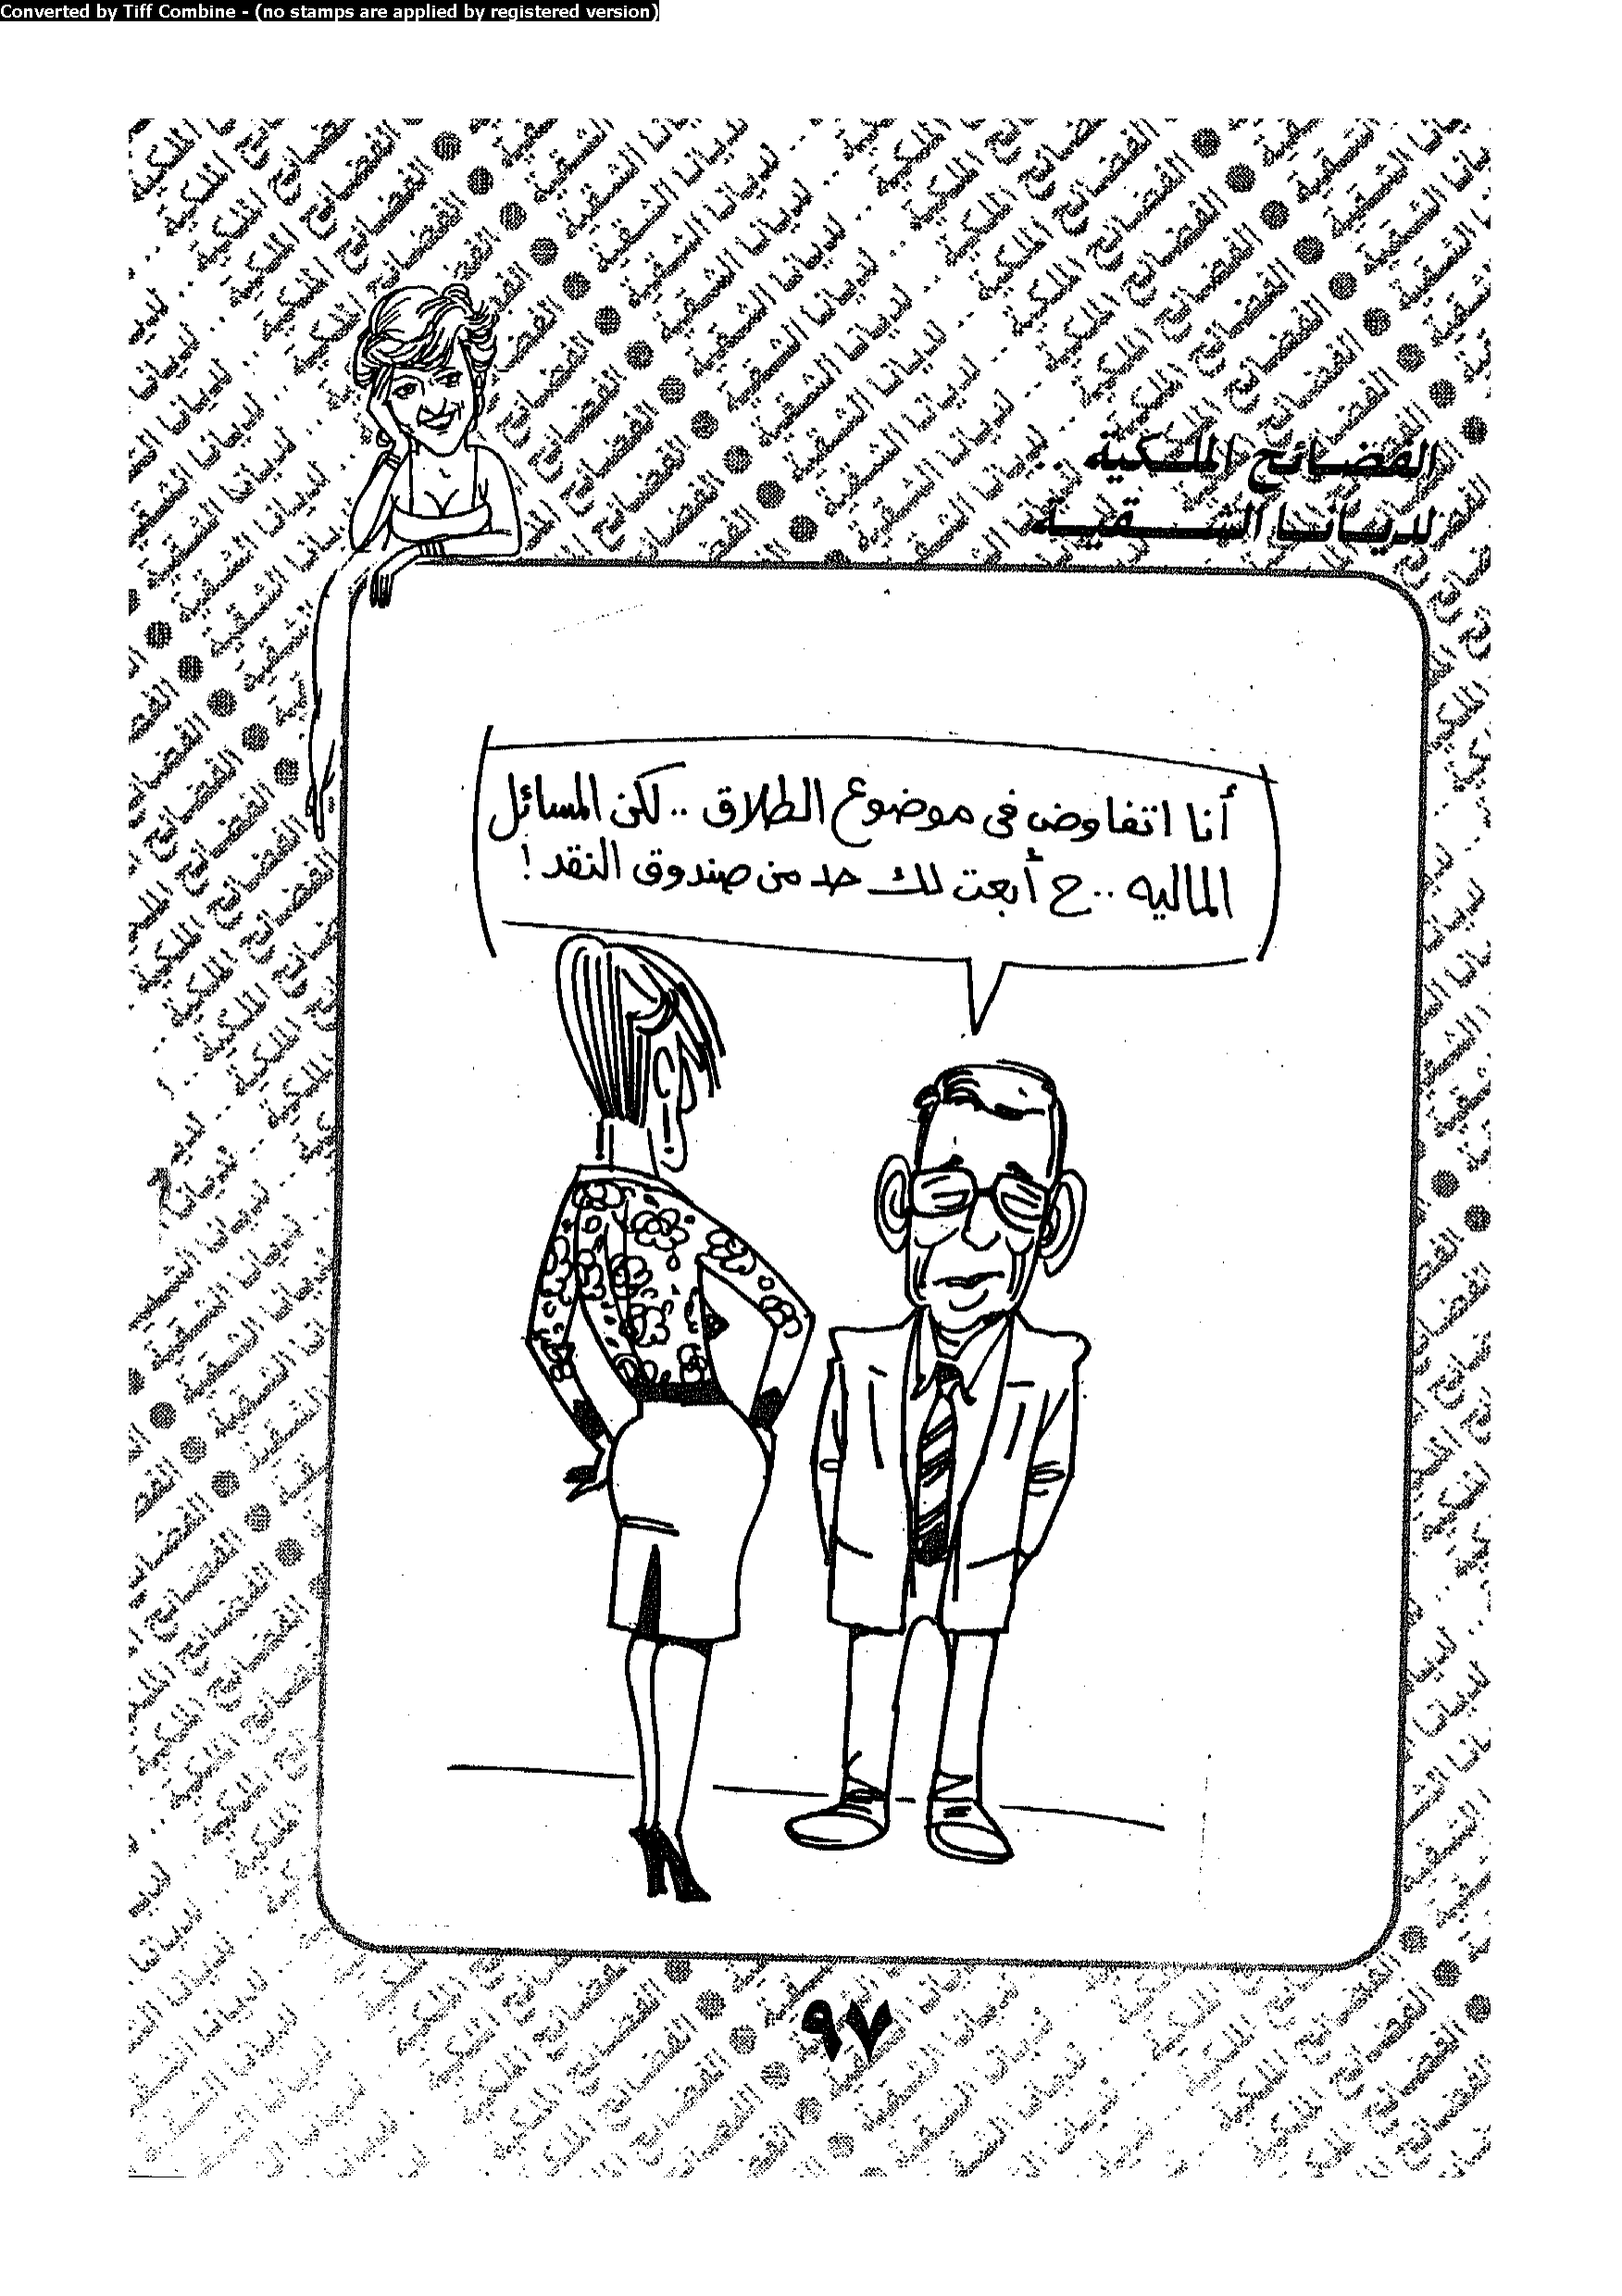 Converted by Tiff Combine - (no stamps are applied by registered version)
الفضائح الملكية ..
لديانا الشقية
أنا اتفاوض فى موضوع الطلاق .. لكن المسائل
الماليه .. ح أبعت لك حد من صندوق النقد !
٩٧